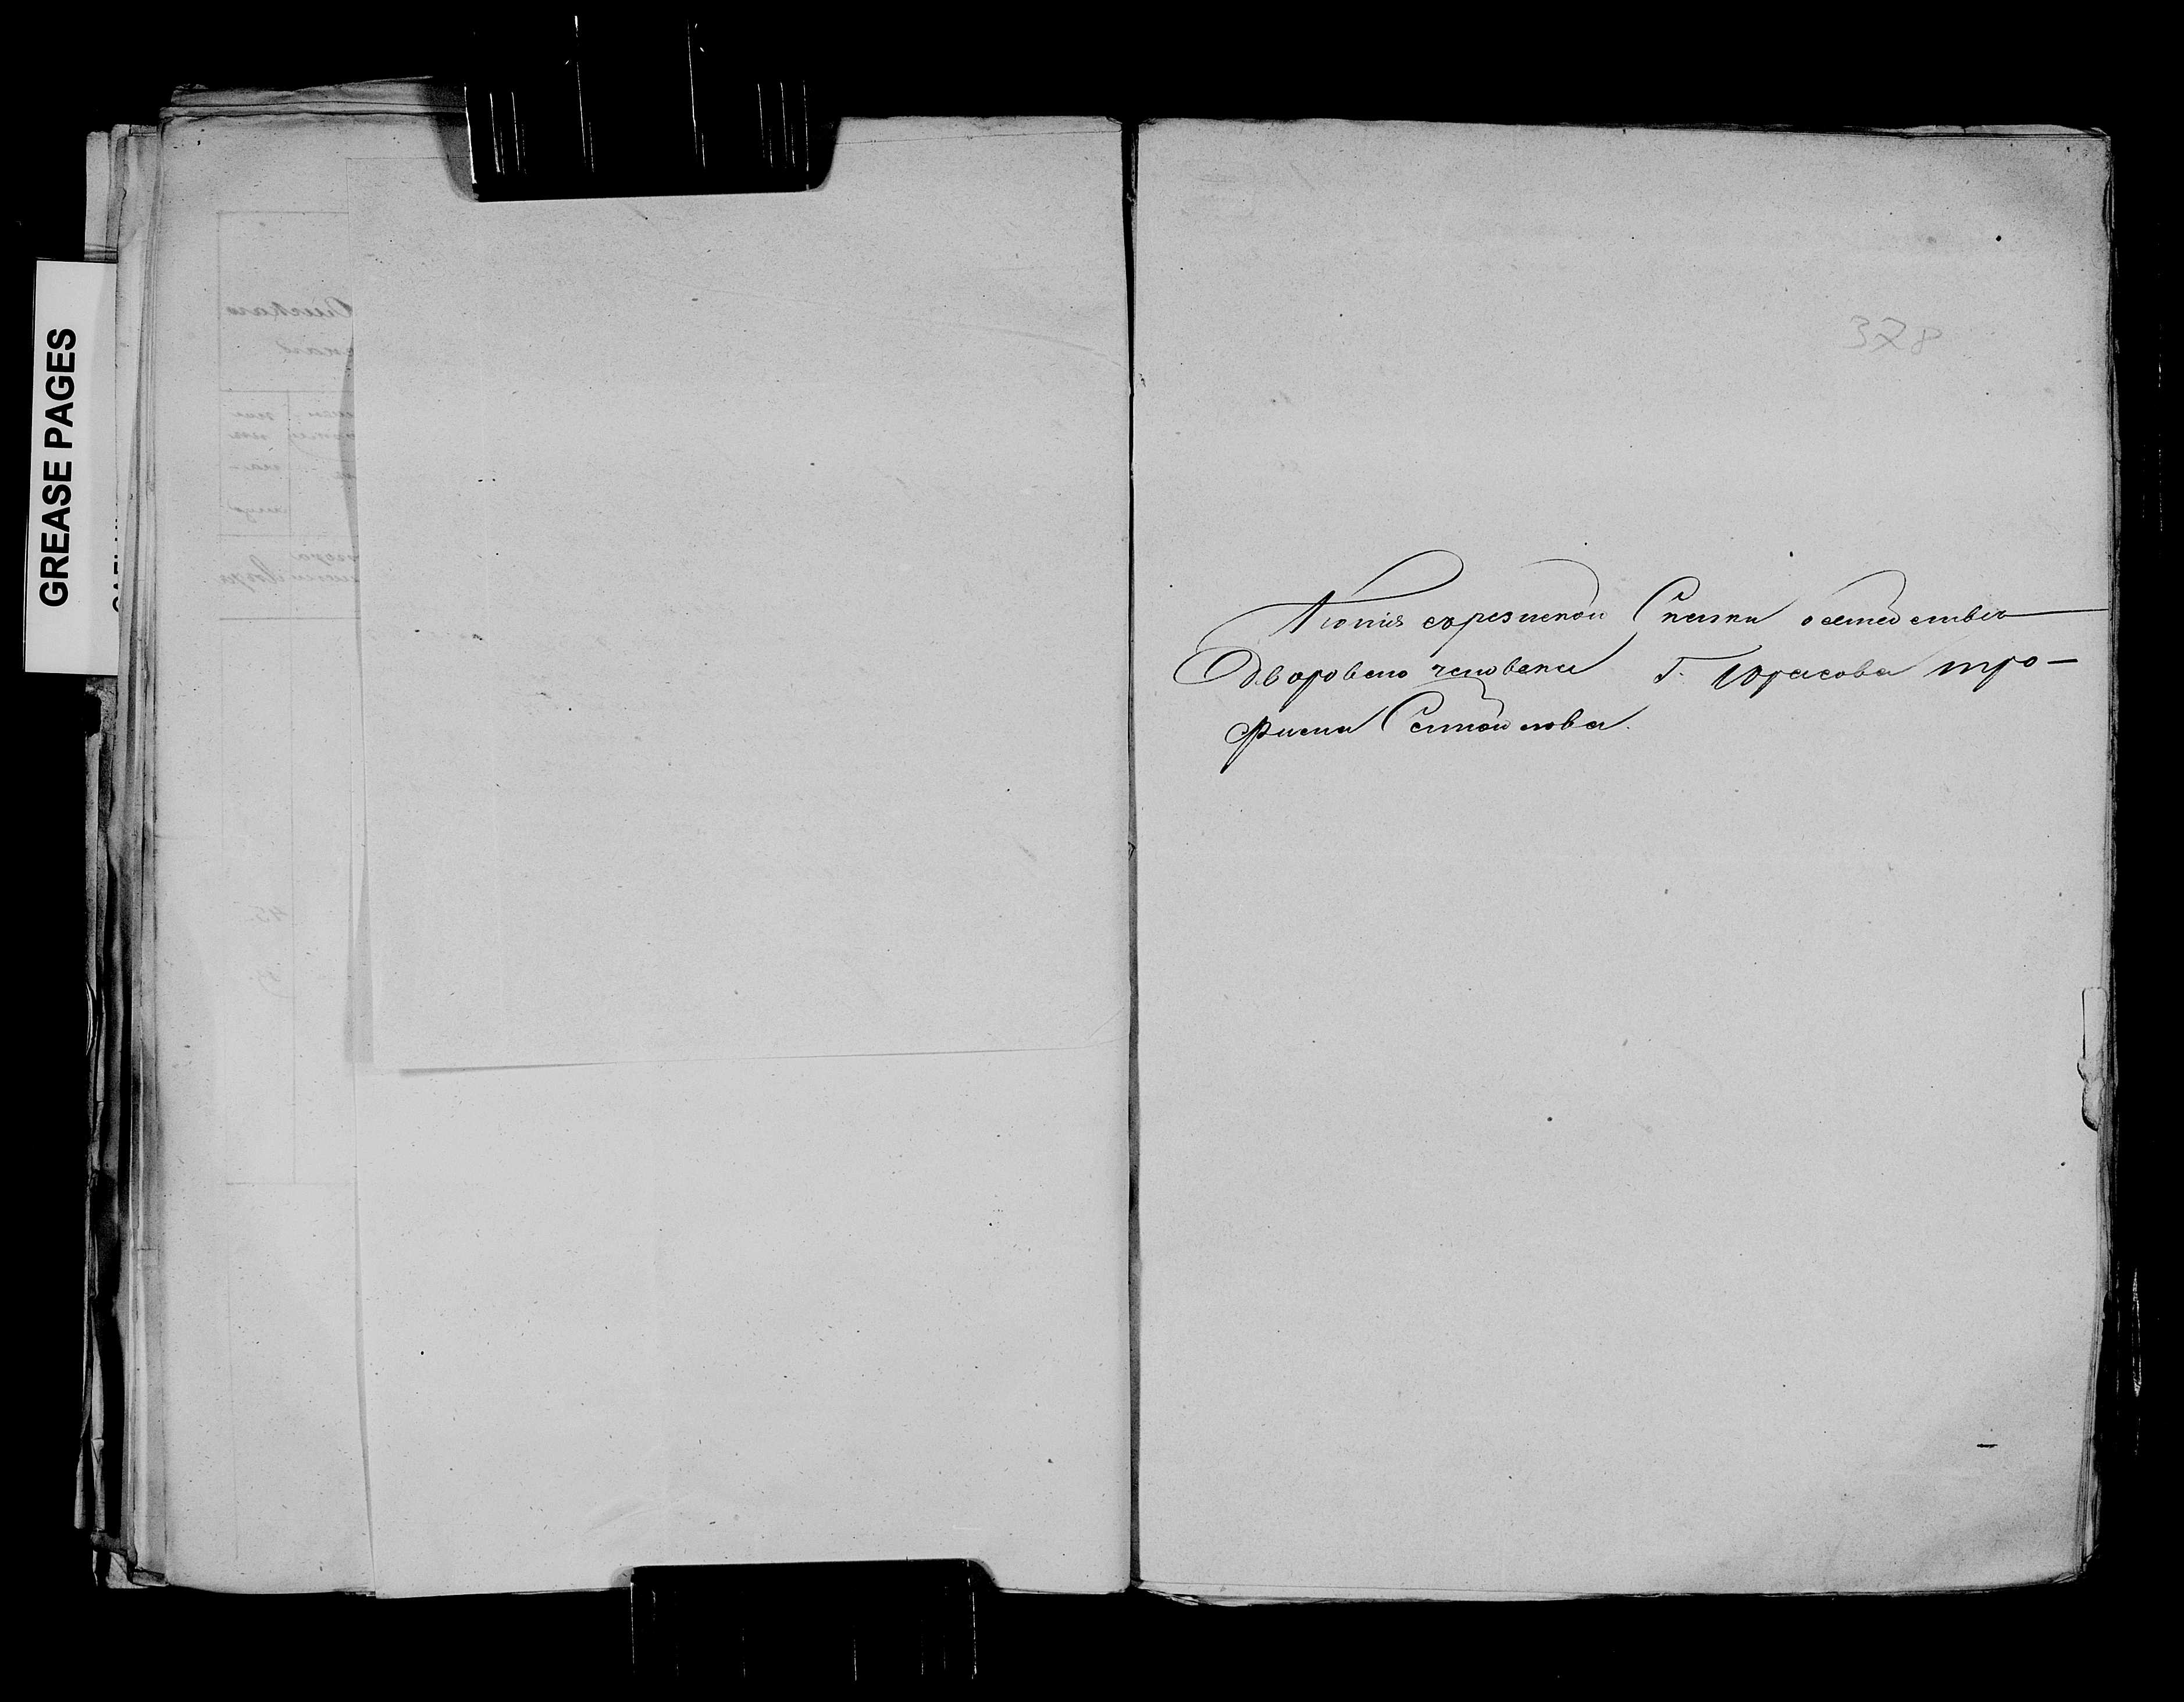 GREASE PAGES
378
Копія съревизской Сказки осемействе
Дворового человека Г. Юрасова тро-
фима Самойлова.